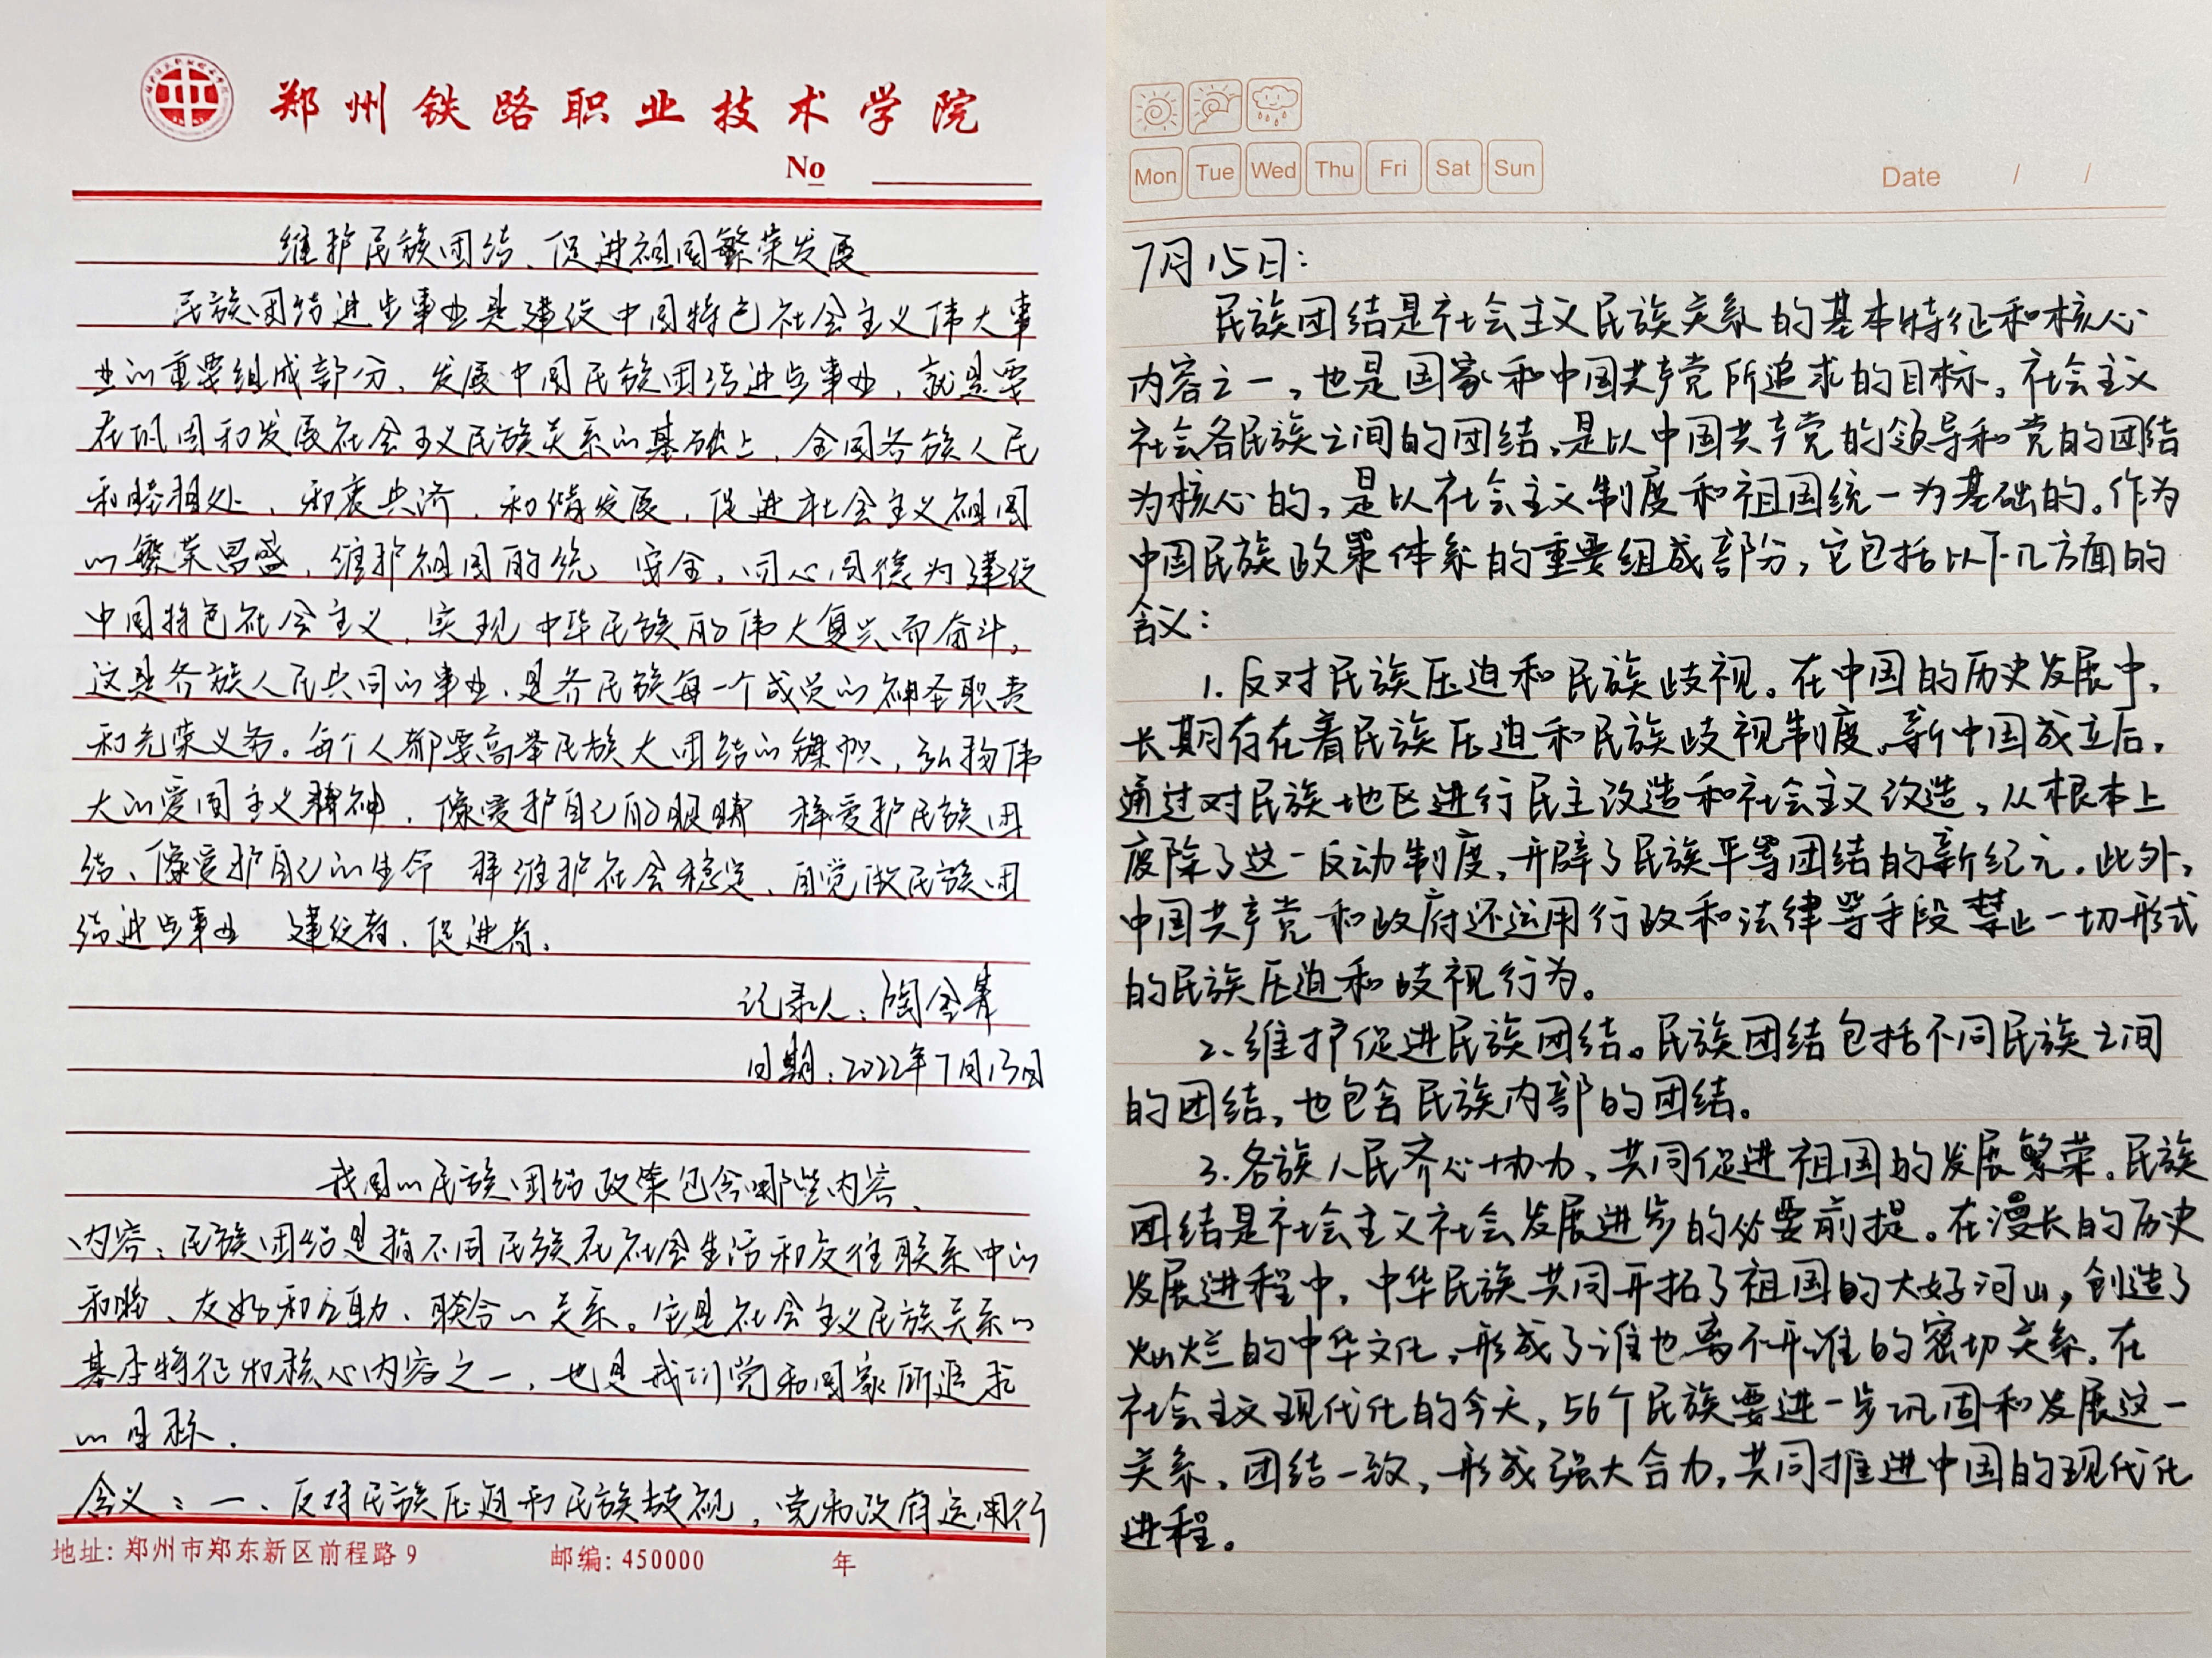 郑州铁路职业技术学院
No
维护民族团结、促进祖国繁荣发展
民族团结进步事业是建设中国特色社会主义伟大事
业的重要组成部分，发展中国民族团结进步事业，就是要
在巩固和发展社会主义民族关系的基础上，全国各族人民
和睦相处、和衷共济、和谐发展，促进社会主义祖国
的繁荣昌盛，维护祖国的统 安全，同心同德为建设
中国特色社会主义，实现中华民族的伟大复兴而奋斗，
这是各族人民共同的事业，是各民族每一个成员的神圣职责
和光荣义务。每个人都要高举民族大团结的旗帜，弘扬伟
大的爱国主义精神，像爱护自己的眼睛 样爱护民族团
结、像爱护自己的生命 样维护社会稳定，自觉做民族团
结进步事业 建设者、促进者。
记录人：陶金
日期：2022年7月13日
我国的民族团结政策包含哪些内容、
内容：民族团结是指不同民族在社会生活和交往联系中的
和睦、友好和互助、联合的关系。它是社会主义民族关系的
基本特征和核心内容之一，也是我们党和国家所追求
的目标．
含义：一、反对民族压迫和民族歧视，党和政府运用行
地址: 郑州市郑东新区前程路 9 邮编: 450000 年
Mon Tue Wed Thu Fri Sat Sun Date / /
7月15日：
民族团结是社会主义民族关系的基本特征和核心
内容之一，也是国家和中国共产党所追求的目标。社会主义
社会各民族之间的团结，是以中国共产党的领导和党的团结
为核心的，是以社会主义制度和祖国统一为基础的。作为
中国民族政策体系的重要组成部分，它包括以下几方面的
含义：
1. 反对民族压迫和民族歧视。在中国的历史发展中，
长期存在着民族压迫和民族歧视制度。新中国成立后，
通过对民族地区进行民主改造和社会主义改造，从根本上
废除了这一反动制度，开辟了民族平等团结的新纪元。此外，
中国共产党和政府还运用行政和法律等手段禁止一切形式
的民族压迫和歧视行为。
2、维护促进民族团结。民族团结包括不同民族之间
的团结，也包含民族内部的团结。
3. 各族人民齐心协力，共同促进祖国的发展繁荣。民族
团结是社会主义社会发展进步的必要前提。在漫长的历史
发展进程中，中华民族共同开拓了祖国的大好河山，创造了
灿烂的中华文化，形成了谁也离不开谁的密切关系。在
社会主义现代化的今天，56个民族要进一步巩固和发展这一
关系，团结一致，形成强大合力，共同推进中国的现代化
进程。